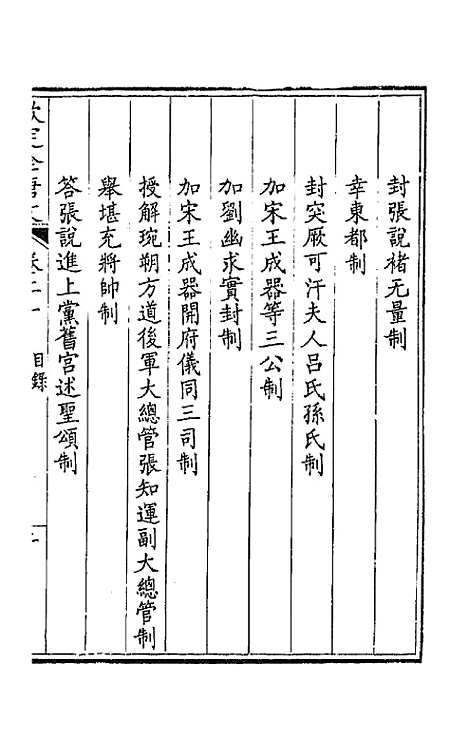 封張說褚无量制
幸東都制
封突厥可汗夫人呂氏孫氏制
加宋王成器等三公制
加劉幽求實封制
加宋王成器開府儀同三司制
授解琬朔方道後軍大總管張知運副大總管制
舉堪充將帥制
答張說進上黨舊宮述聖頌制
欽定全唐文 卷二十 目錄